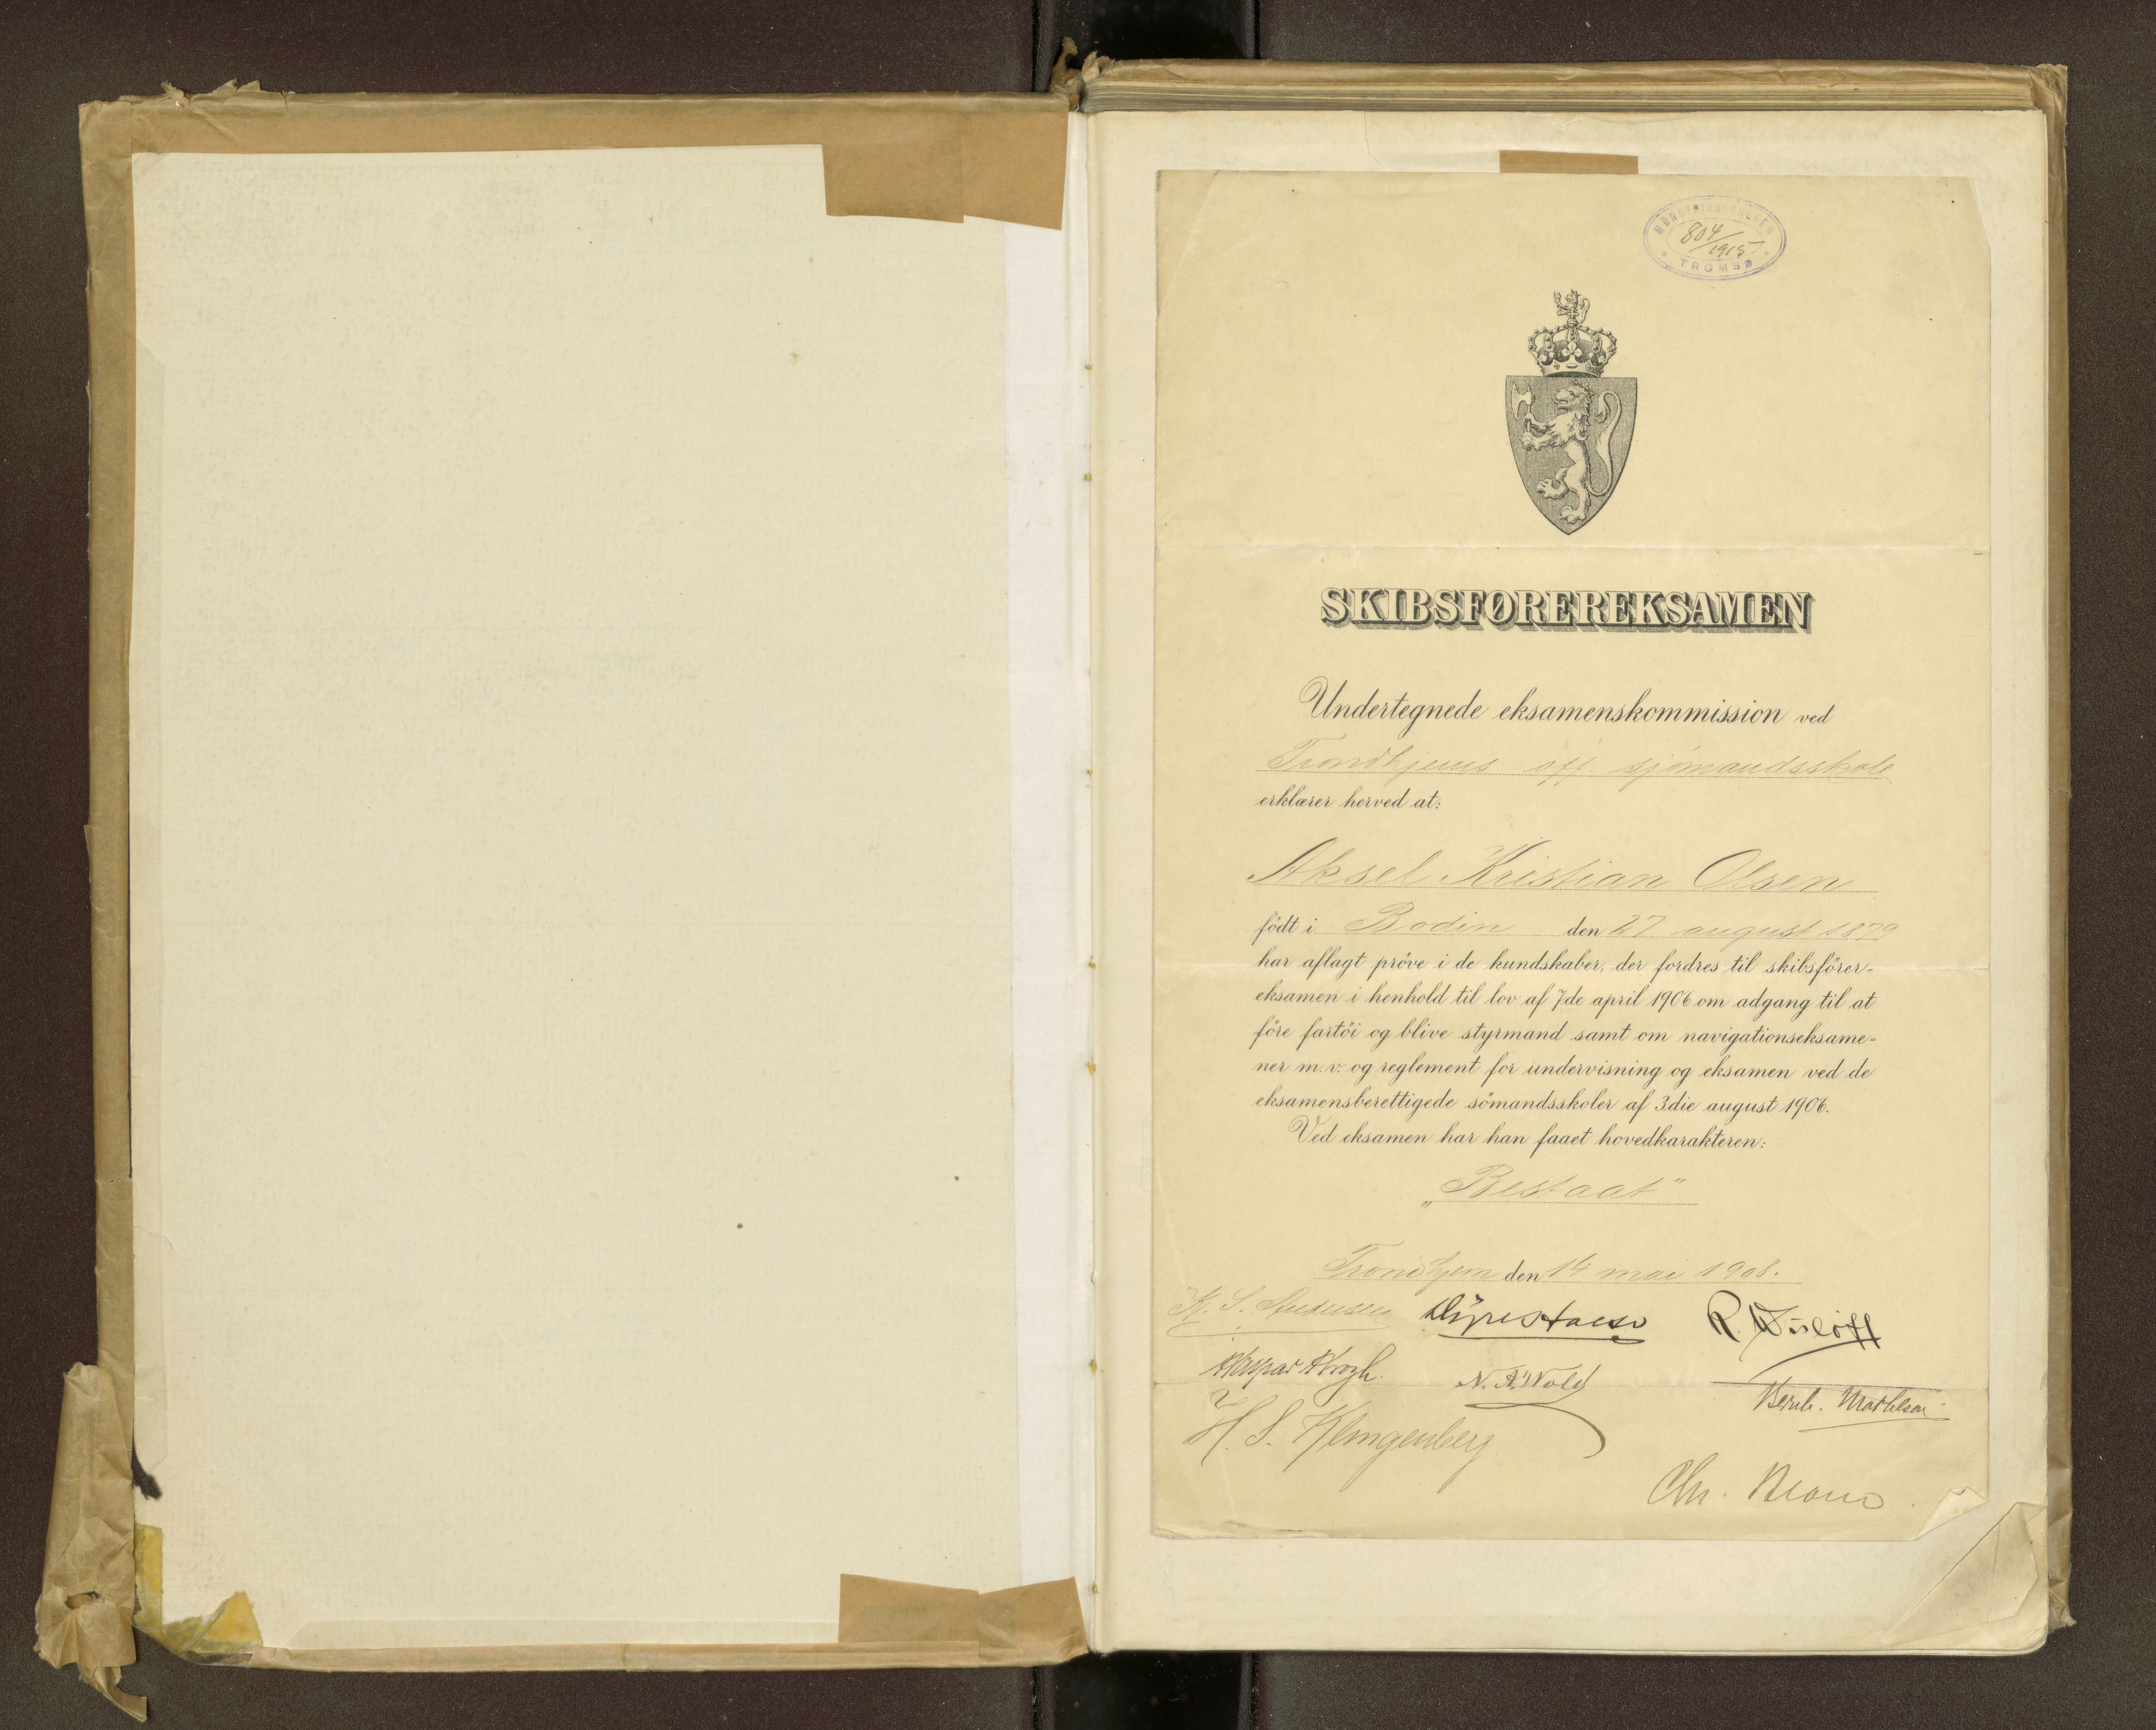 MØNSTRINGSCHEFEN
804/1915.
TROMSØ
SKIBSFØREREKSAMEN
Undertegnede eksamenskommission ved
Trondhjems off. sjömandsskole
erklærer herved at:
Aksel Kristian Olsen
födt i Bodin den 27 august 1879
har aflagt pröve i de kundskaber, der fordres til skibsförer-
eksamen i henhold til lov af 7de april 1906 om adgang til at
före fartöi og blive styrmand samt om navigationseksame-
ner m.v. og reglement for undervisning og eksamen ved de
eksamensberettigede sömandsskoler af 3die august 1906.
Ved eksamen har han faaet hovedkarakteren:
„Bestaat"
Trondhjem den 14 mai 1908.
K. S. Andersen R.
Kaspar Krogh. N. A. Wold Bernh. Mathesen
H. S. Klingenberg
Chr.